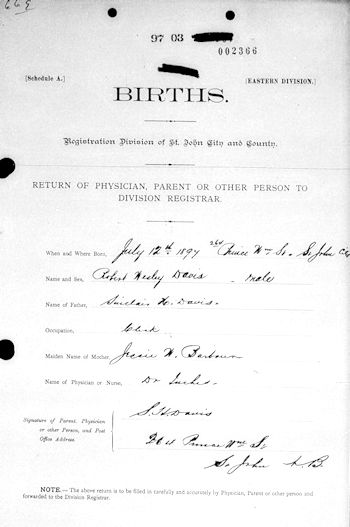 669
97 03
002366
[Schedule A.] [EASTERN DIVISION.]
BIRTHS.
Registration Division of St. John City and County.
RETURN OF PHYSICIAN, PARENT OR OTHER PERSON TO
DIVISION REGISTRAR.
When and Where Born, July 12th 1897 264 Prince Wm St. St John City
Name and Sex, Robert Wesley Davis male
Name of Father, Sinclair H. Davis.
Occupation, Clerk
Maiden Name of Mother, Jessie W. Barbour
Name of Physician or Nurse, Dr
Signature of Parent, Physician
or other Person, and Post
Office Address
S. H Davis
264 Prince Wm St
St John N. B.
NOTE.—The above return is to be filed in carefully and accurately by Physician, Parent or other person and
forwarded to the Division Registrar.